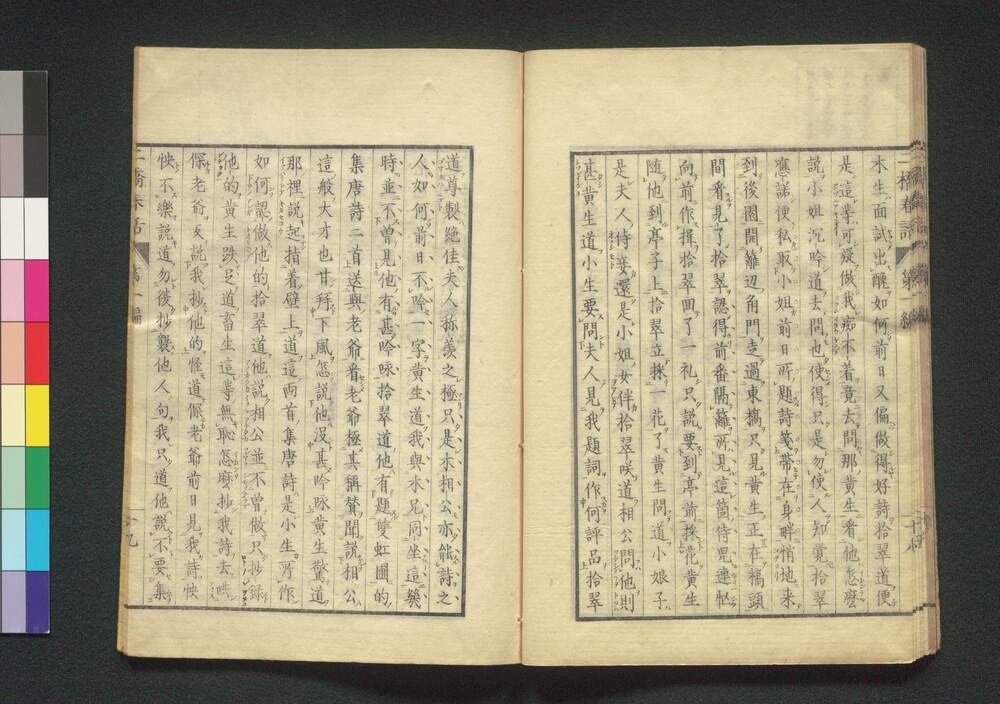 木生面試出醜如何前日又偏做得好詩拾翠道便
是這等可疑做我痴不着竟去問那黄生看他怎麽
説小姐沉吟道去問也使得只是勿使人知覚拾翠
應諾便私取小姐前日所題詩箋帶在身畔悄地来
到後園開籬辺角門走過東橋只見黄生正在橋頭
間看見了拾翠認得前番隔籬所見這箇侍児連忙
向前作揖拾翠回了一礼只説要到亭前採花黄生
随他到亭子上拾翠立採一花了黄生問道小娘子
是夫人侍妾還是小姐女伴拾翠咲道相公問他則
甚黄生道小生要問夫人見我題詞作何評品拾翠
道尊製絶佳夫人称羨之極只是木相公亦能詩之
人如何前日不吟一字黄生道我與木兄同坐這幾
時並不曽見他有甚吟咏拾翠道他有題雙虹圃的
集唐詩二首送與老爺看老爺極其稱賛聞説相公
這般大才也甘拜下風怎説他没甚吟咏黄生驚道
那裡説起指着壁上道這兩首集唐詩是小生所作
如何認做他的拾翠道他説相公並不曽做只抄録
他的黄生跌足道畜生這等無恥怎麽抄我詩去哄
你老爺反説我抄他的怪道你老爺前日見我詩怏
怏不樂説道勿後抄襲他人一句我只道他説不要集
第一編